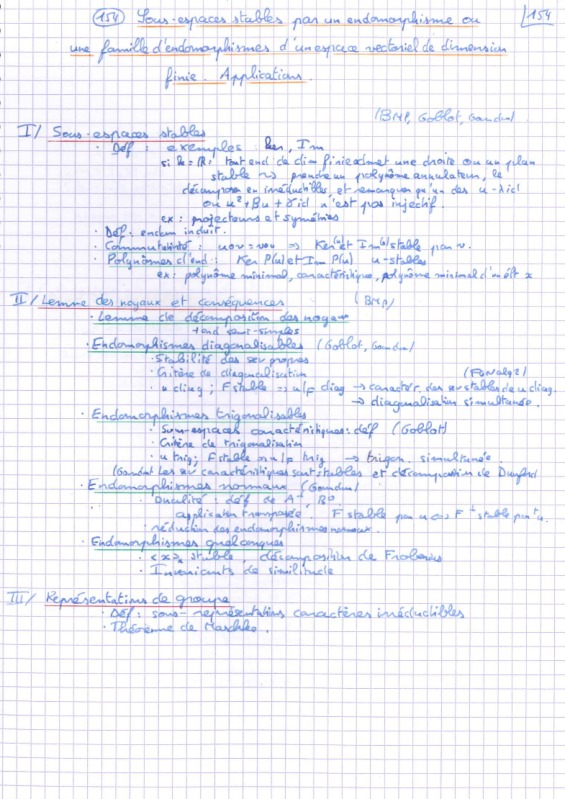 (154) Sous-espaces stables par un endomorphisme ou
154
une famille d'endomorphismes d'un espace vectoriel de dimension
finie. Applications.
(BMP, Goblot, Gourdon)
I/ Sous-espaces stables
· Déf : exemples : Ker, Im
si k = ℝ : tout end de dim finie admet une droite ou un plan
stable ⇝ prendre un polynôme annulateur, le
décomposer en irréductibles, et remarquer qu'un des u-λid
ou u²+βu+γid n'est pas injectif.
ex : projecteurs et symétries
· Déf : endom induit.
· Commutativité : uov = vou ⇒ Ker(u) et Im(u) stable par v.
· Polynômes d'end : Ker P(u) et Im P(u) u-stables
ex : polynôme minimal, caractéristique, polynôme minimal d'un élt x
II/ Lemme des noyaux et conséquences (BMP)
· Lemme de décomposition des noyaux
+ end semi-simples
· Endomorphismes diagonalisables (Goblot, Gourdon)
· Stabilité des sev propres
· Critère de diagonalisation
· u diag ; F stable ⇒ u/F diag → caractér. des sev stables de u diag.
→ diagonalisation simultanée.
· Endomorphismes trigonalisables
· Sous-espaces caractéristiques : déf (Goblot)
· Critère de trigonalisation
· u trig ; F stable ⇒ u/F trig → trigon. simultanée.
(Gourdon) Les sev caractéristiques sont stables et décomposition de Dunford
· Endomorphismes normaux (Gourdon)
· Dualité : déf de A⊥, B°
application transposée F stable par u ⇔ F⊥ stable par ᵗu.
· réduction des endomorphismes normaux.
· Endomorphismes quelconques
· stable décomposition de Frobenius
· Invariants de similitude
III/ Représentations de groupe
· Déf : sous-représentations caractères irréductibles
· Théorème de Maschke.